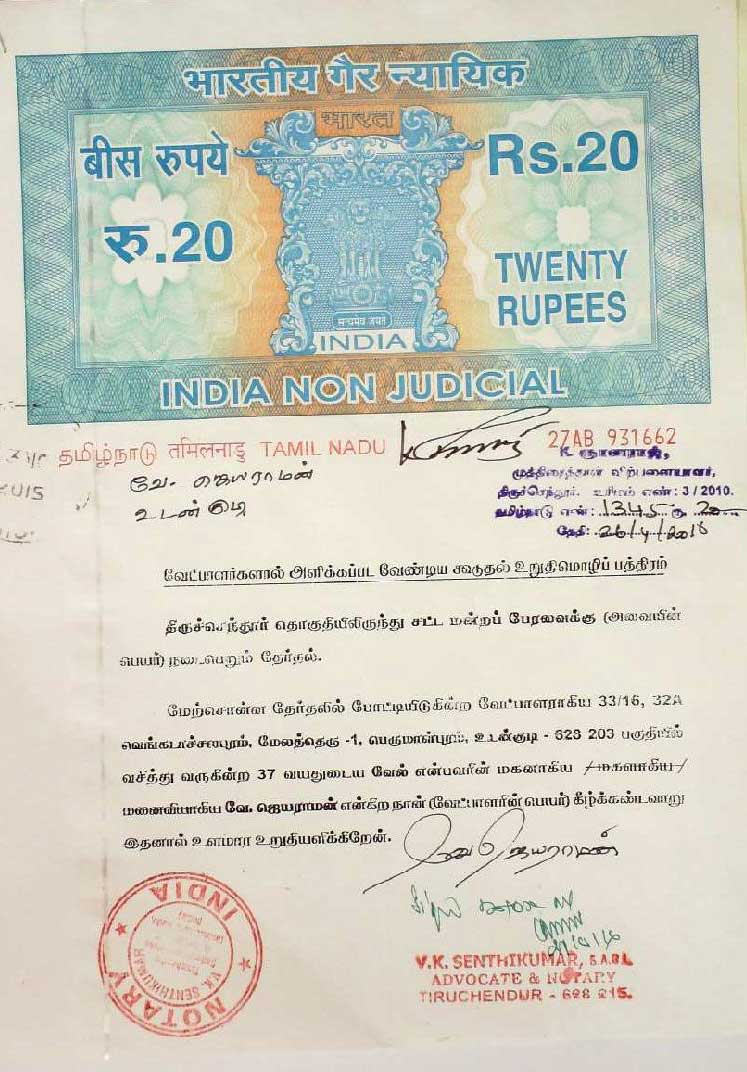 भारतीय गैर न्यायिक
भारत
बीस रुपये
Rs.20
रु.20
TWENTY
RUPEES
सत्यमेव जयते
INDIA
INDIA NON JUDICIAL
தமிழ்நாடு तमिलनाडु TAMIL NADU
27AB 931662
வே. ஜெயராமன்
உடன்குடி
K. ஞானராஜ்,
முத்திரைத்தாள் விற்பனையாளர்,
திருச்செந்தூர். உரிமம் எண்: 3/2010.
எண்: 1345 ரூ 20
தேதி: 26/4/2016
வேட்பாளர்களால் அளிக்கப்பட வேண்டிய கூடுதல் உறுதிமொழிப் பத்திரம்
திருச்செந்தூர் தொகுதியிலிருந்து சட்ட மன்றப் பேரவைக்கு (அவையின்
பெயர்) நடைபெறும் தேர்தல்.
மேற்சொன்ன தேர்தலில் போட்டியிடுகின்ற வேட்பாளராகிய 33/16, 32A
வெங்கடாச்சலபுரம், மேலத்தெரு -1, பெருமாள்புரம், உடன்குடி - 628 203 பகுதியில்
வசித்து வருகின்ற 37 வயதுடைய வேல் என்பவரின் மகனாகிய /மகளாகிய/
மனைவியாகிய வே. ஜெயராமன் என்கிற நான் (வேட்பாளரின் பெயர்) கீழ்க்கண்டவாறு
இதனால் உளமார உறுதியளிக்கிறேன்.
வே ஜெயராமன்
V.K. SENTHIKUMAR, B.A.B.L
ADVOCATE & NOTARY
TIRUCHENDUR - 628 215.
NOTARY
INDIA
V.K. SENTHIKUMAR